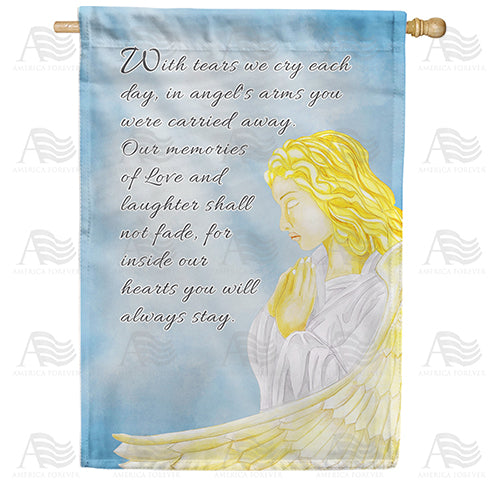 With tears we cry each
day, in angel's arms you
were carried away.
Our memories
of Love and
laughter shall
not fade, for
inside our
hearts you will
always stay.
AMERICA FOREVER